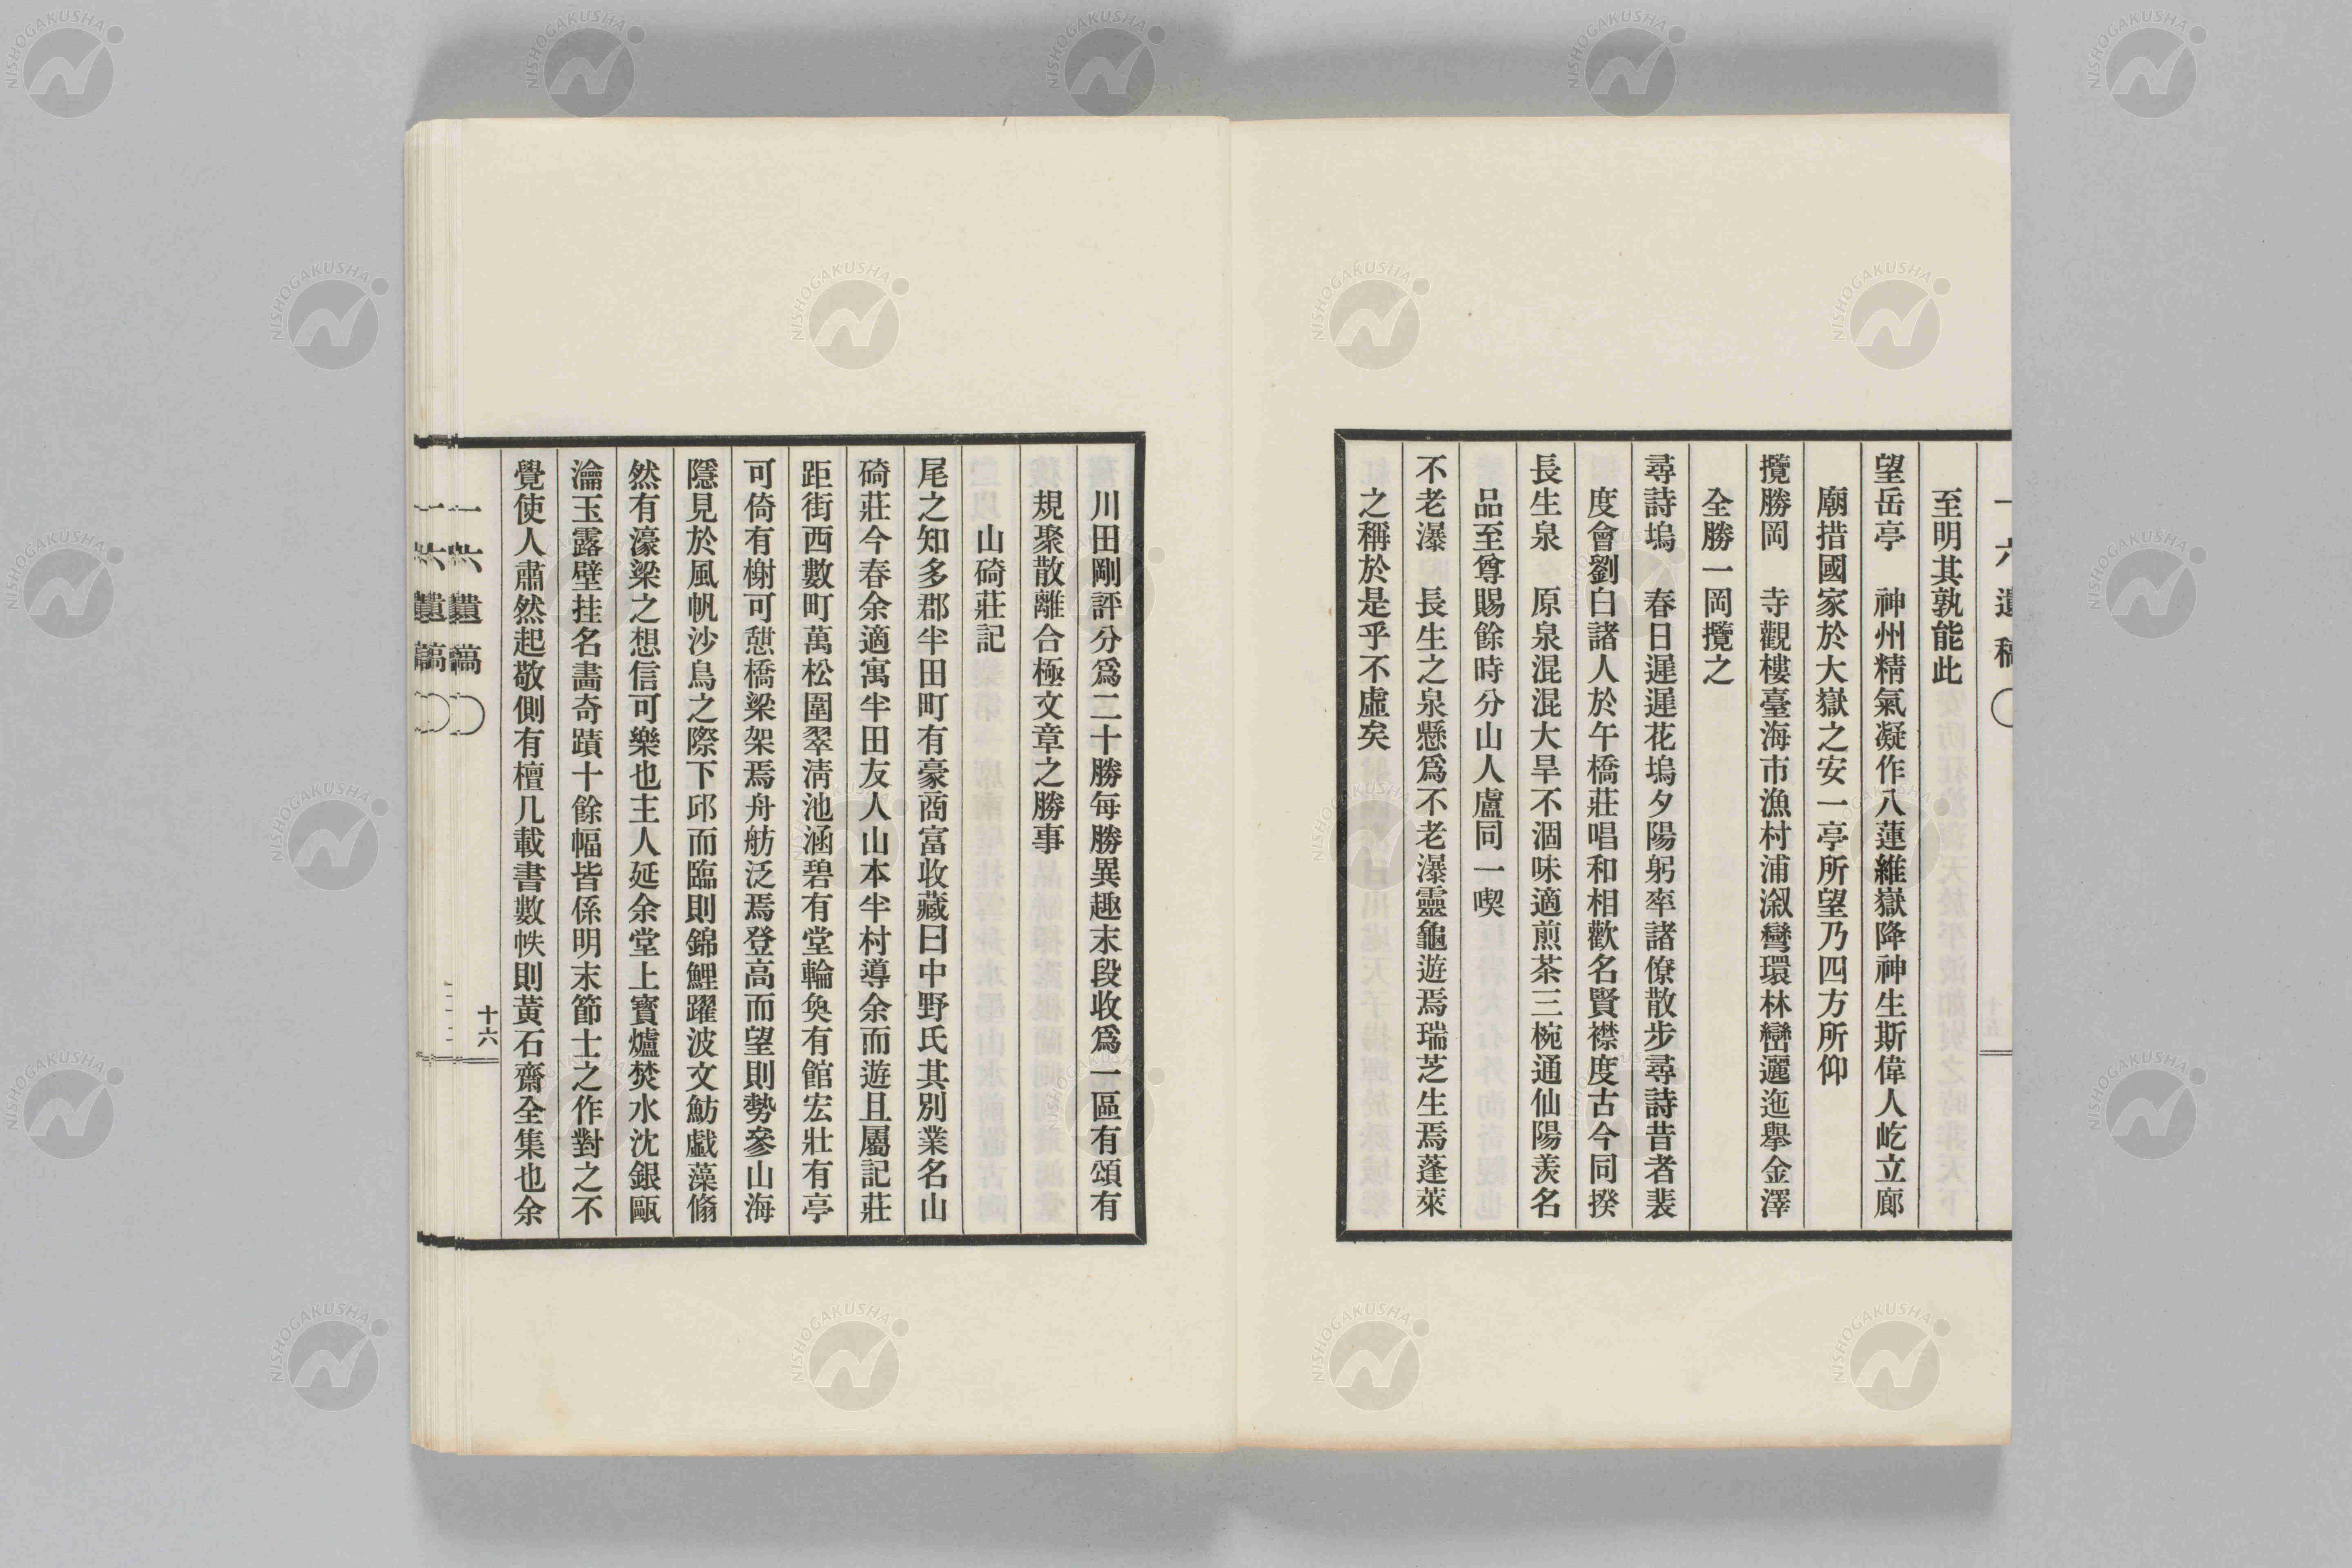 一六遺稿
至明其孰能此
望岳亭　神州精氣凝作八蓮維嶽降神生斯偉人屹立廊
廟措國家於大嶽之安一亭所望乃四方所仰
攬勝岡　寺觀樓臺海市漁村浦漵彎環林巒邐迤擧金澤
全勝一岡攬之
尋詩塢　春日遲遲花塢夕陽躬率諸僚散步尋詩昔者裴
度會劉白諸人於午橋莊唱和相歡名賢襟度古今同揆
長生泉　原泉混混大旱不涸味適煎茶三椀通仙陽羨名
品至尊賜餘時分山人盧同一喫
不老瀑　長生之泉懸爲不老瀑靈龜遊焉瑞芝生焉蓬萊
之稱於是乎不虛矣
川田剛評分爲二十勝每勝異趣末段收爲一區有頌有
規聚散離合極文章之勝事
山碕莊記
尾之知多郡半田町有豪商富收藏曰中野氏其別業名山
碕莊今春余適寓半田友人山本半村導余而遊且屬記莊
距街西數町萬松圍翠淸池涵碧有堂輪奐有館宏壯有亭
可倚有榭可憩橋梁架焉舟舫泛焉登高而望則勢參山海
隱見於風帆沙鳥之際下邱而臨則錦鯉躍波文魴戲藻翛
然有濠梁之想信可樂也主人延余堂上寶爐焚水沈銀甌
瀹玉露壁挂名畵奇蹟十餘幅皆係明末節士之作對之不
覺使人肅然起敬側有檀几載書數帙則黃石齋全集也余
十六
一六遺稿
一六遺稿